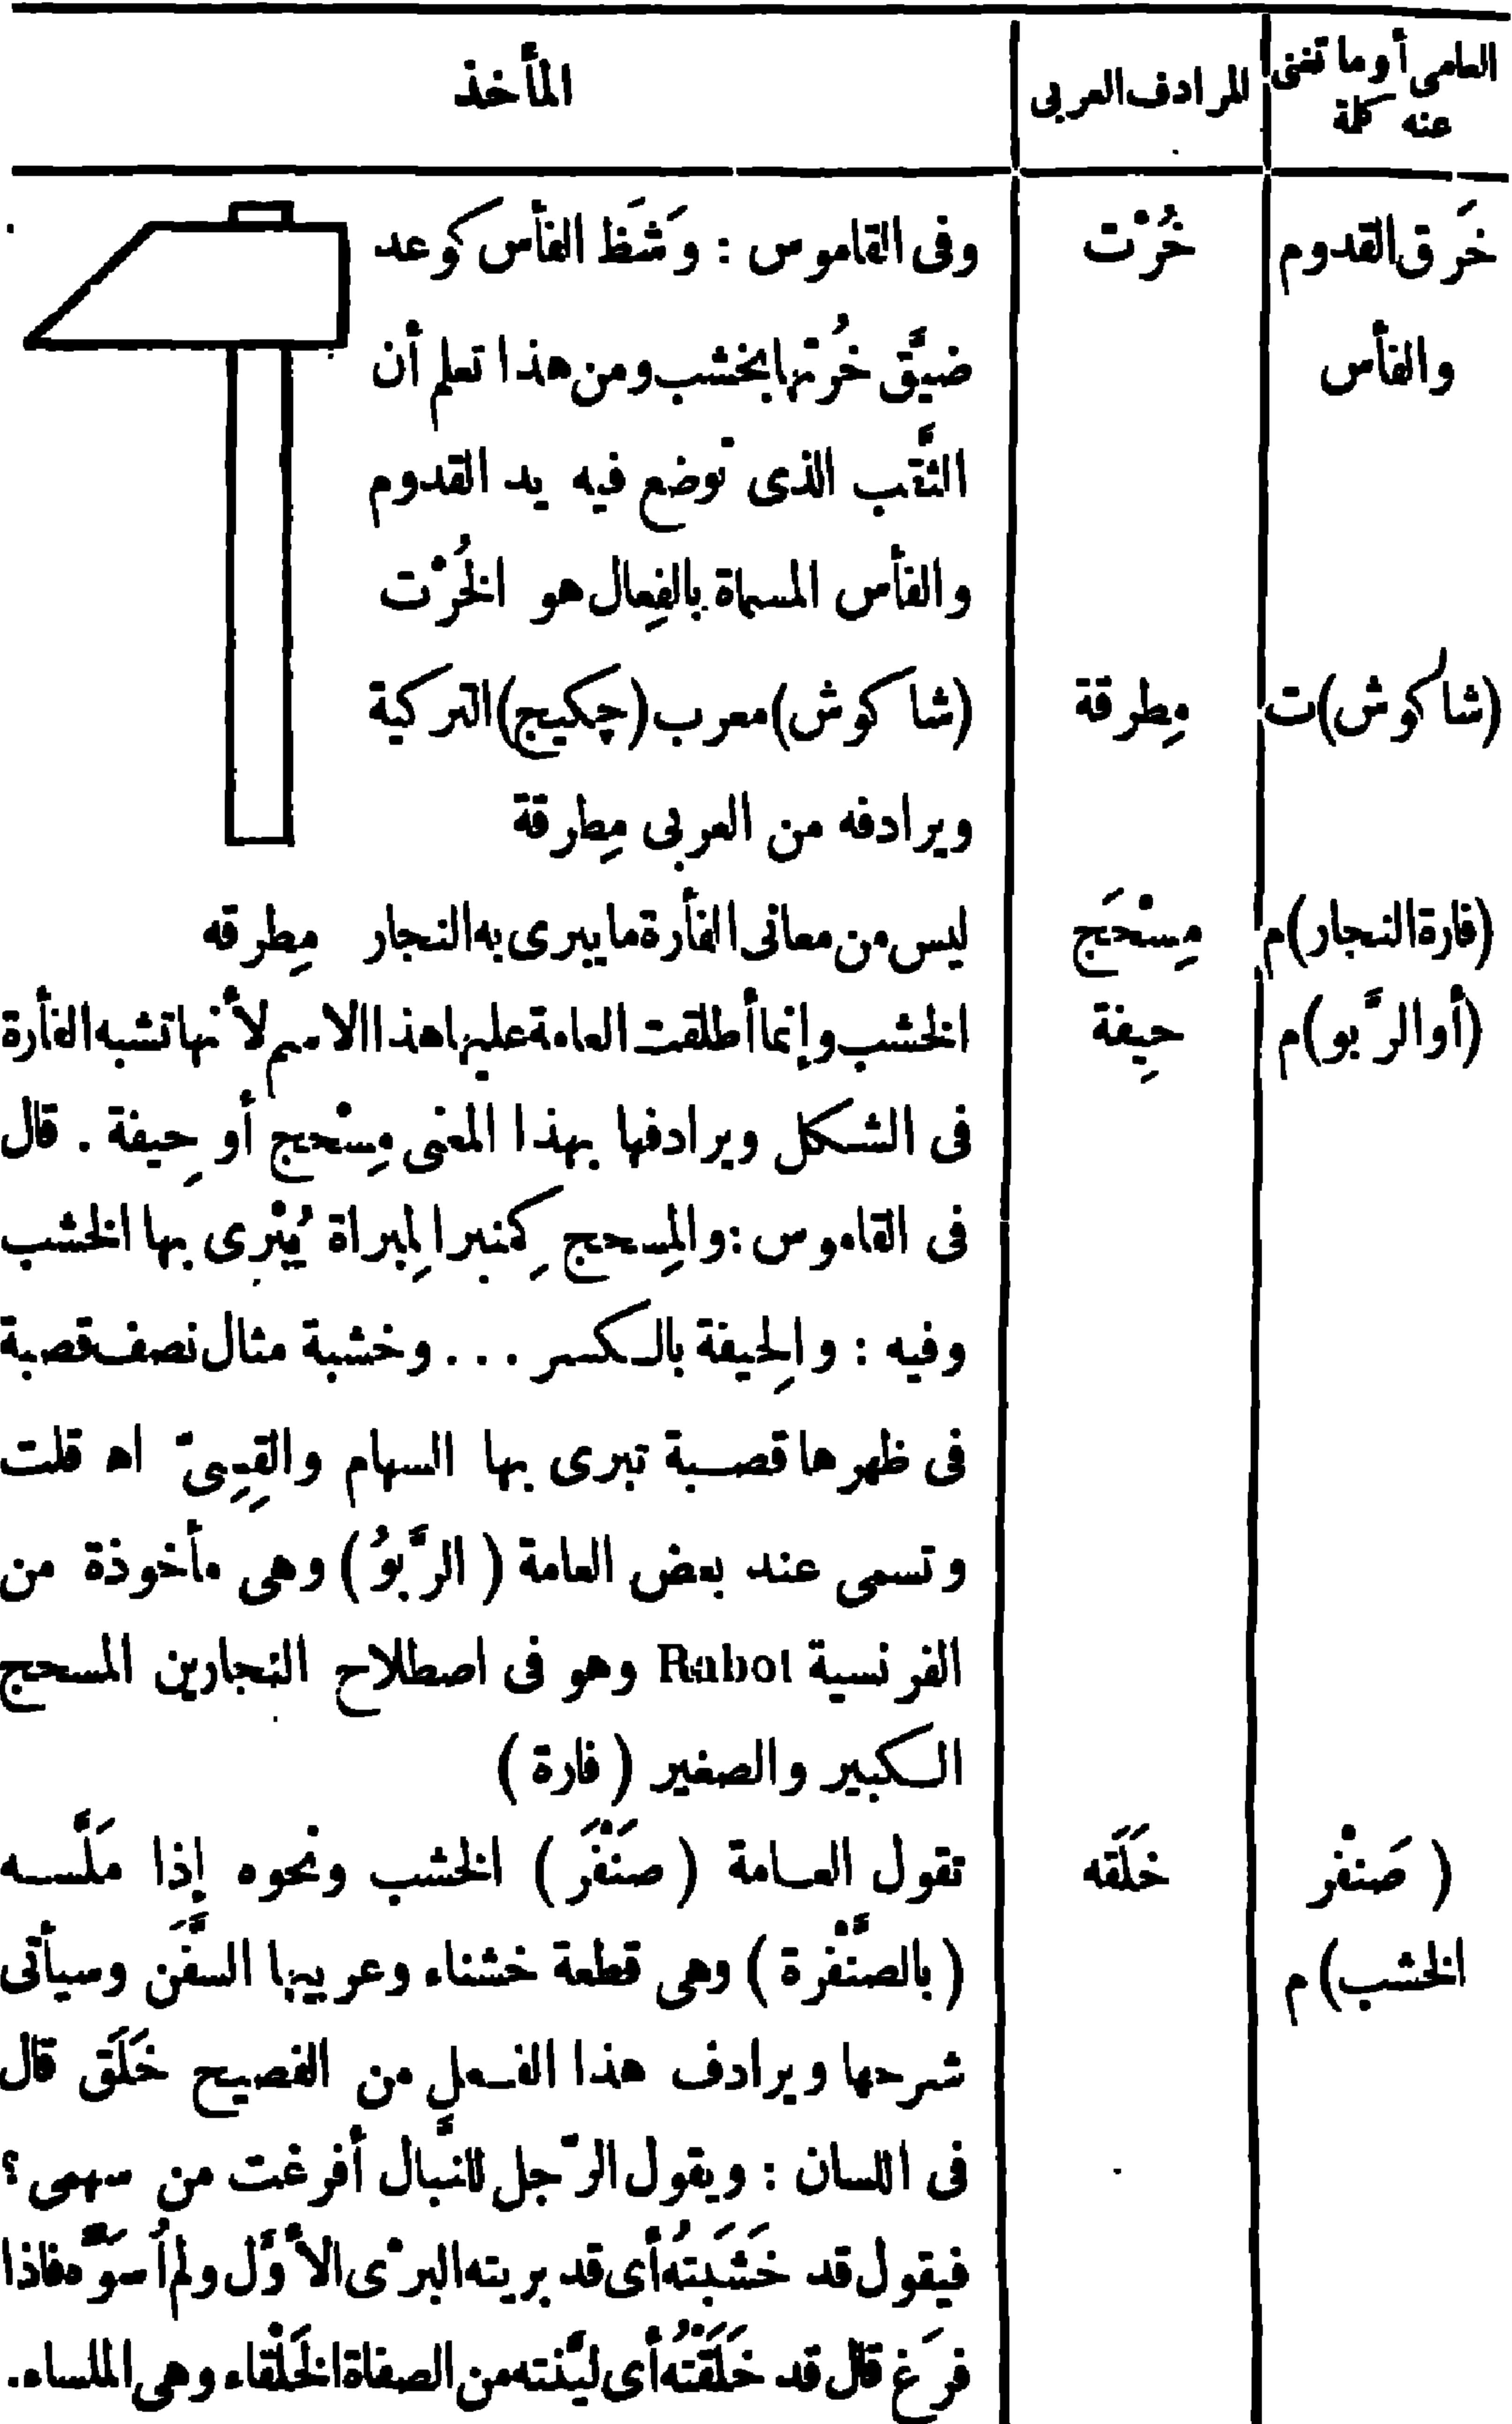 العامى أو ما تغنى عنه كلمة | المرادف العربى | المأخذ
خَرق القدوم | خُرْت | وفى القاموس : وَشَظَ الفأس كوعد
والفأس | ضيَّق خُرتها بخشب ومن هذا تعلم أن
الثَّقب الذى توضع فيه يد القدوم
والفأس المسماة بالفِعال هو الخُرْت
(شاكوش) ت | مِطرقة | (شاكوش) معرب (چكيچ) التركية
ويرادفه من العربى مِطرقة
(فارة النجار) م | مِسْحَج | ليس من معانى الفأرة ما يبرى به النجار مِطرقه
(أو الرَّبو) م | حِيفة | الخشب وإنما أطلقت العامة عليها هذا الاسم لأنها تشبه الفأرة
فى الشكل ويرادفها بهذا المعنى مِسْحج أو حِيفة . قال
فى القاموس : والمِسحج كِمنبر المِبراة يُبْرى بها الخشب
وفيه : والحِيفة بالكسر ... وخشبة مثال نصف قصبة
فى ظهرها قصبة تبرى بها السهام والقِسِىّ اه قلت
وتسمى عند بعض العامة ( الرَّبوُ ) وهى مأخوذة من
الفرنسية Rabot وهو فى اصطلاح النجارين المسحج
الكبير والصغير ( فارة )
( صَنْفر | خَلَقه | تقول العامة ( صَنْفَرَ ) الخشب ونحوه إذا مَلَّسه
الخشب) م | ( بالصَّنْفرة ) وهى قطعة خشناء وعربيها السَّفَن وسيأتى
شرحها ويرادف هذا الفعل من الفصيح خَلَق قال
فى اللسان : ويقول الرّجل للنَّبال أفرغت من سهمى ؟
فيقول قد خَشَبتُه أى قد بريته البرْى الأوَّل ولم أُسَوِّه فاذا
فرَغ قال قد خَلَقْتُه أى ليَّنته من الصفاة الخَلْقاء وهى الملساء.